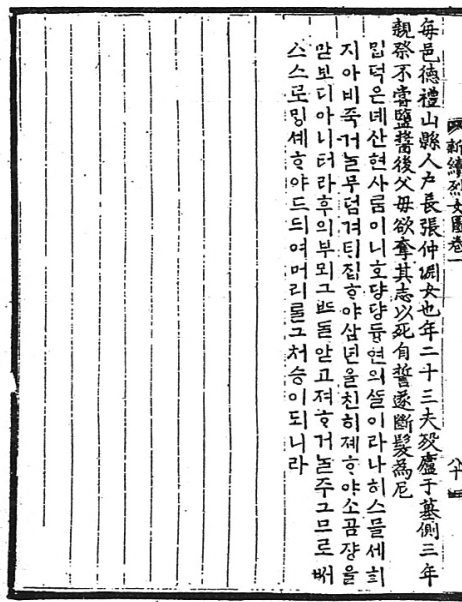 新續烈女圖卷一
每邑德禮山縣人戶長張仲淵女也年二十三夫歿廬于墓側三年
親祭不嘗鹽醬後父母欲奪其志以死自誓遂斷髮為尼
밉덕은녜산현사ᄅᆞᆷ이니호댱댱듕연의ᄯᆞᆯ이라나히스믈세희
지아비죽거ᄂᆞᆯ무덤겨틔집ᄒᆞ야삼년을친히졔ᄒᆞ야소곰쟝을
맏보디아니터라후의부뫼그ᄠᅳᄃᆞᆯ앋고져ᄒᆞ거ᄂᆞᆯ주그므로ᄡᅥ
스스로밍셰ᄒᆞ야드듸여머리ᄅᆞᆯ그처승이되니라